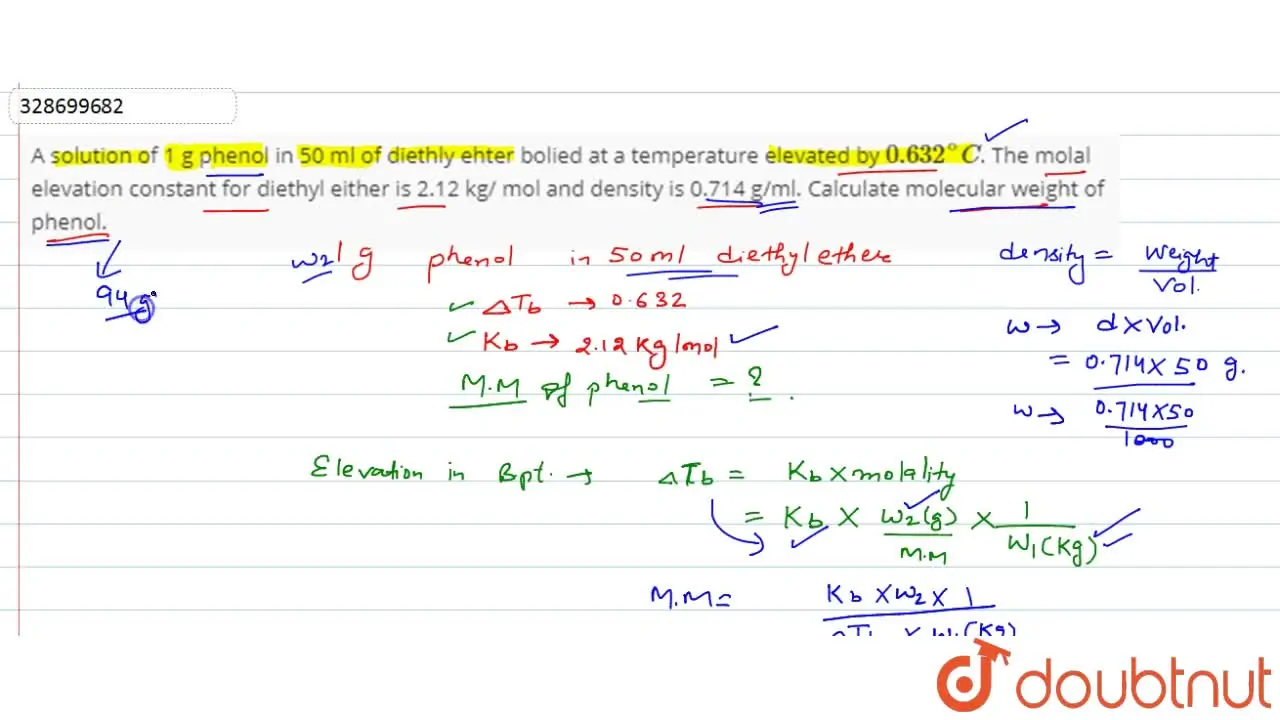 328699682
A solution of 1 g phenol in 50 ml of diethly ehter bolied at a temperature elevated by 0.632° C. The molal
elevation constant for diethyl either is 2.12 kg/ mol and density is 0.714 g/ml. Calculate molecular weight of
phenol.
94 g
w2 1 g phenol in 50 ml diethyl ether
ΔTb → 0.632
Kb → 2.12 Kg/mol
M.M of phenol = ?
density = Weight
Vol.
w → d x Vol.
= 0.714 x 50 g.
w → 0.714 x 50
1000
Elevation in Bpt. → ΔTb = Kb x molality
= Kb x w2 (g) x 1
M.M W1 (Kg)
M.M = Kb x w2 x 1
ΔTb x W1 (Kg)
doubtnut